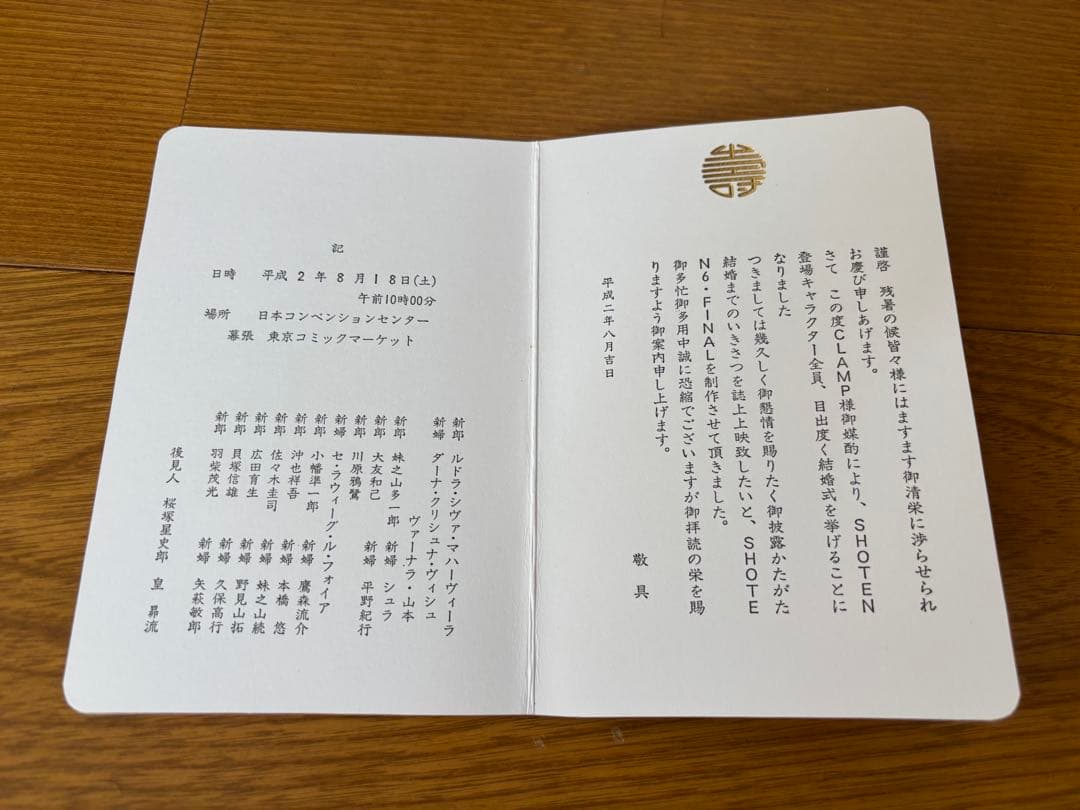 寿
謹啓 残暑の候皆々様にはますます御清栄に渉らせられ
お慶び申しあげます。
さて この度CLAMP様御媒酌により、SHOTEN
登場キャラクター全員、目出度く結婚式を挙げることに
なりました
つきましては幾久しく御懇情を賜りたく御披露かたがた
結婚までのいきさつを誌上上映致したいと、SHOTE
N6・FINALを制作させて頂きました。
御多忙御多用中誠に恐縮でございますが御拝読の栄を賜
りますよう御案内申し上げます。
敬具
平成二年八月吉日
記
日時 平成2年8月18日(土)
午前10時00分
場所 日本コンベンションセンター
幕張 東京コミックマーケット
新郎 ルドラ・シヴァ・マハーヴィーラ
新婦 ダーナ・クリシュナ・ヴィシュ
ヴァーナラ・山本
新郎 妹之山多一郎 新婦 シュラ
新郎 大友和己 新婦 平野紀行
新郎 川原鴉鷺
新婦 セ・ラヴィーグ・ル・フォイア
新郎 小幡準一郎 新婦 鷹森流介
新郎 沖也祥吾 新婦 本橋 悠
新郎 佐々木圭司 新婦 妹之山続
新郎 広田育生 新婦 野見山拓
新郎 貝塚信雄 新婦 久保高行
新郎 羽柴茂光 新婦 矢萩敏郎
後見人 桜塚星史郎 皇 昴流